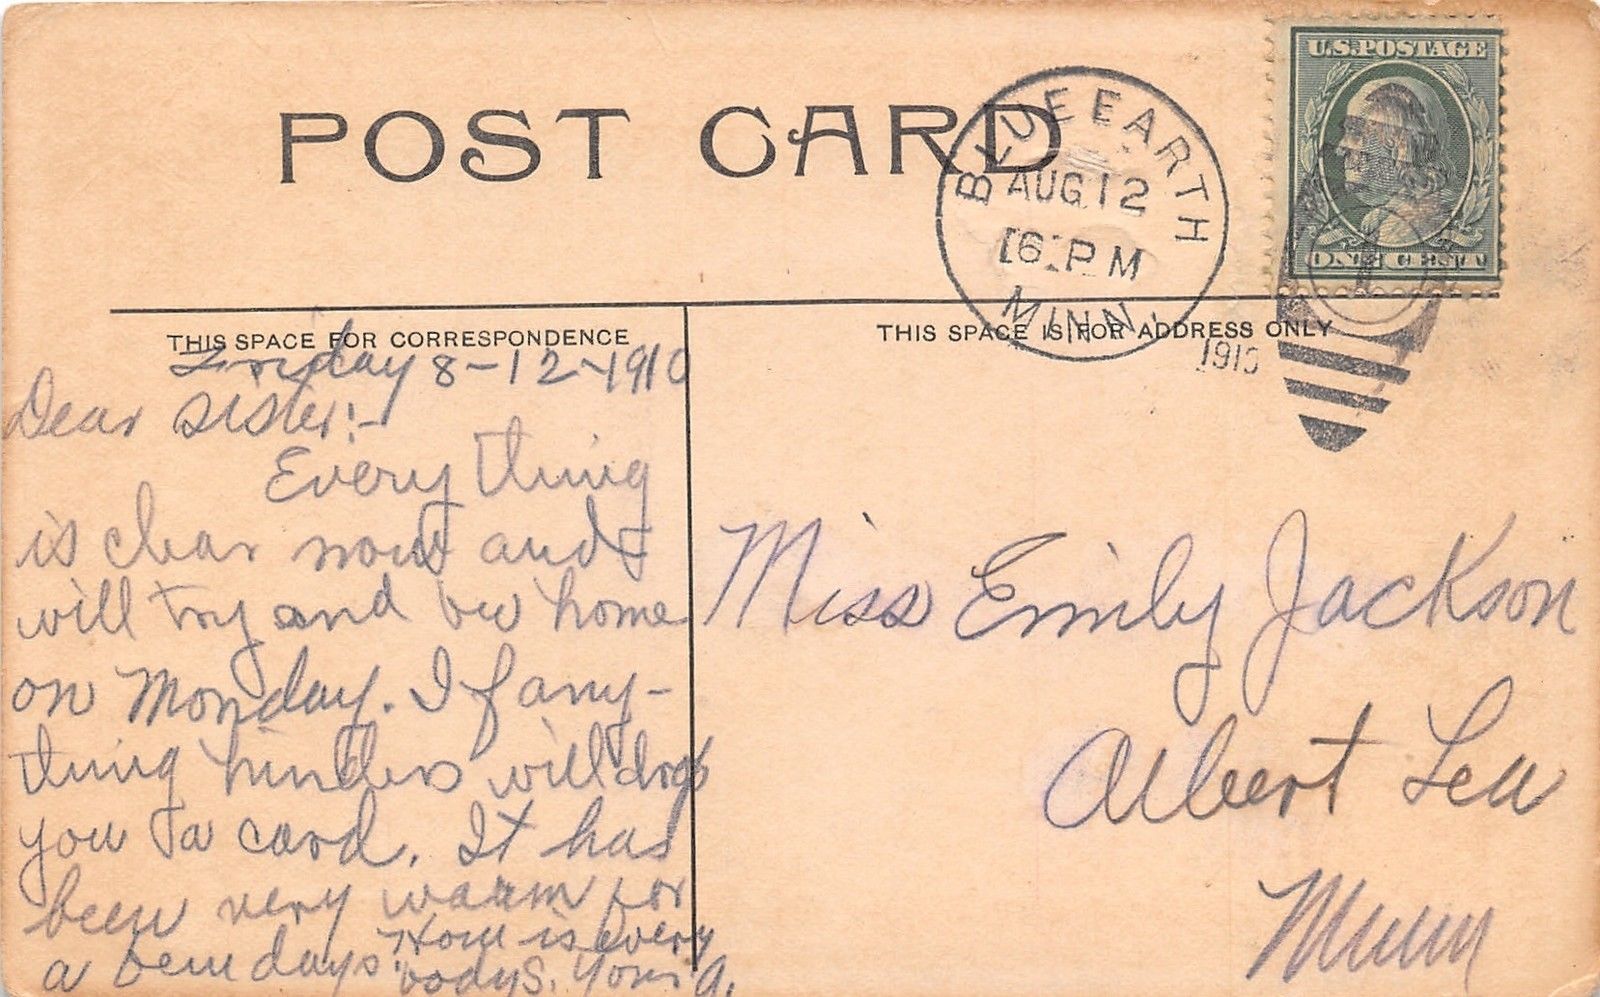 POST CARD
BLUE EARTH
AUG 12
6 PM
MINN.
1910
U.S. POSTAGE
ONE CENT
THIS SPACE FOR CORRESPONDENCE
THIS SPACE IS FOR ADDRESS ONLY
Friday 8-12-1910
Dear Sister:-
Every thing
is clear now and I
will try and be home
on Monday. If any-
thing hinders will drop
you a card. It has
been very warm for
a few days. How is every
bodys. Your
Miss Emily Jackson
Albert Lea
Minn